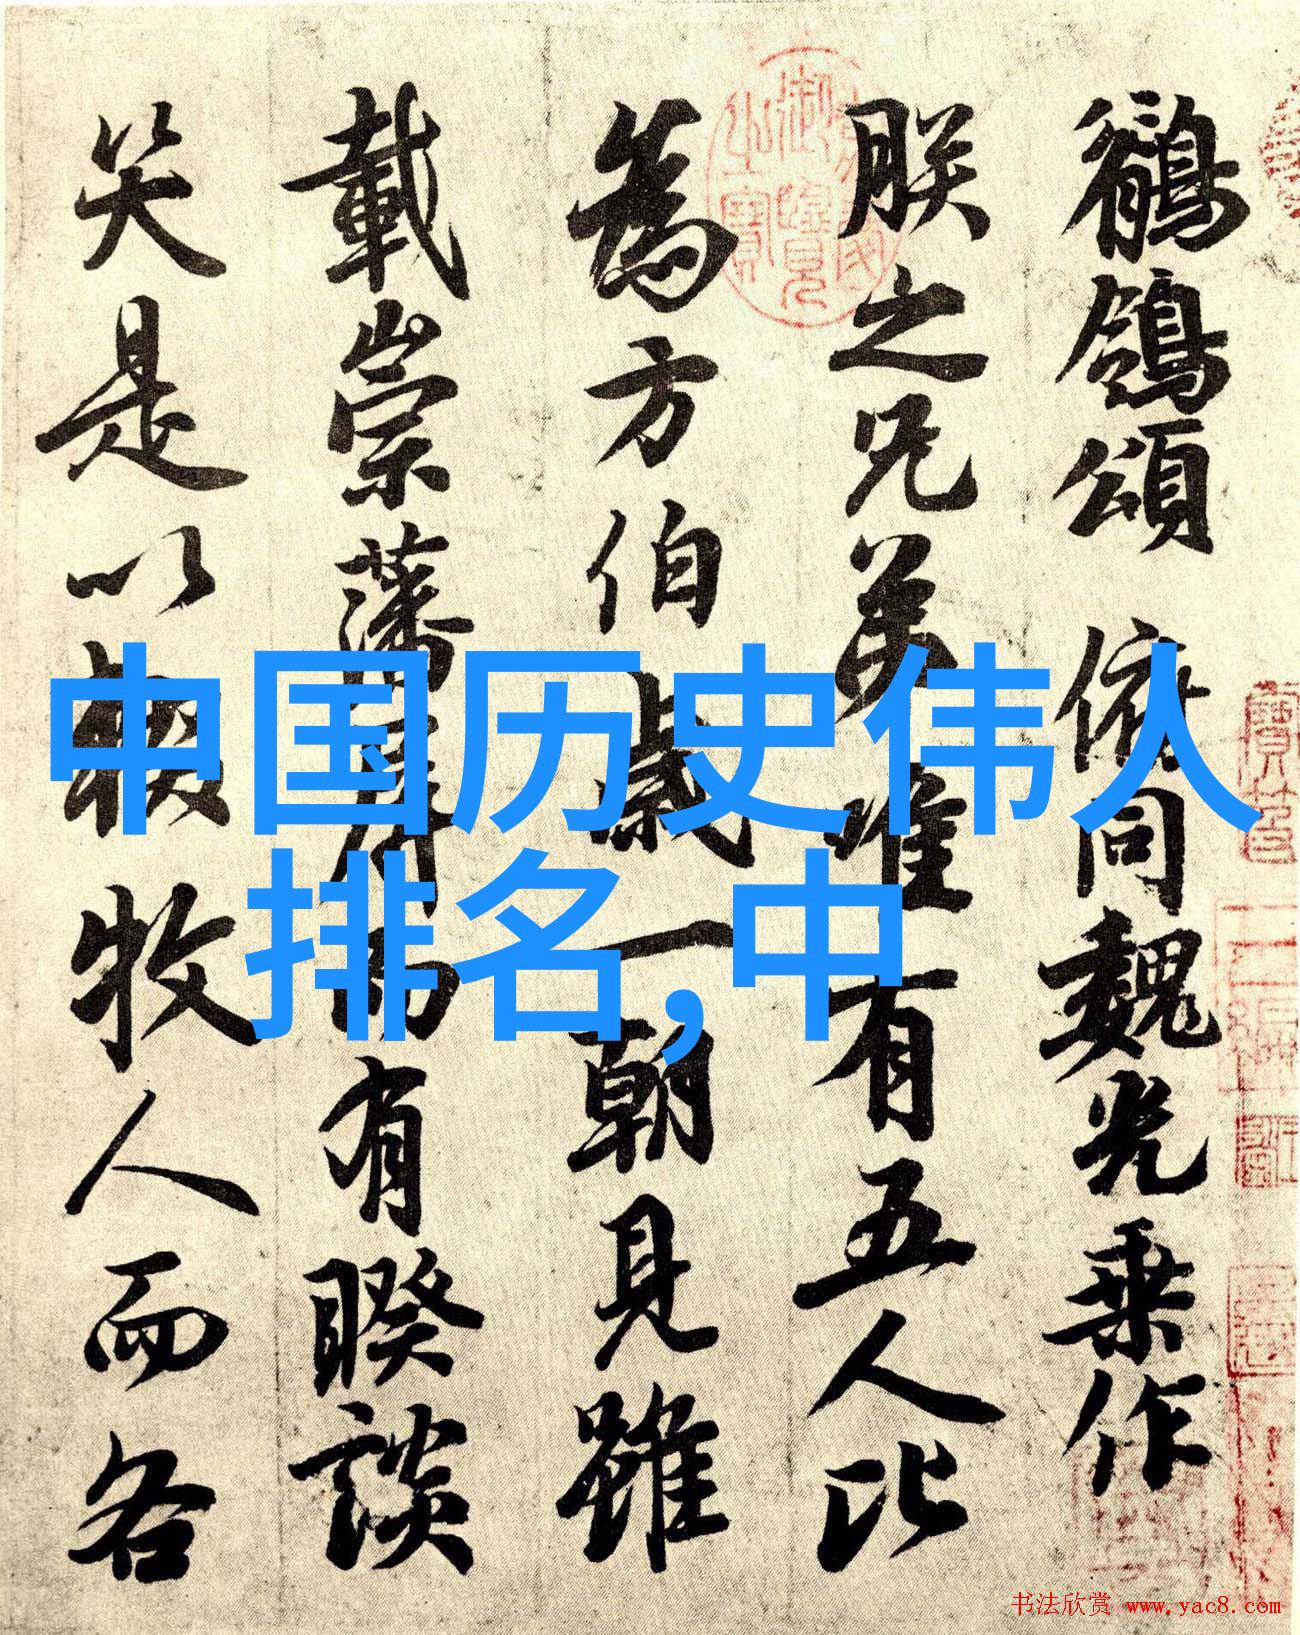 鶺鴒頌 俯同魏光乘作
朕之兄弟唯有五人比
為方伯歲一朝見雖
載崇藩屏而有睽談
笑是以輟牧人而各
中国历史伟人
排名,中
书法欣赏 www.yac8.com